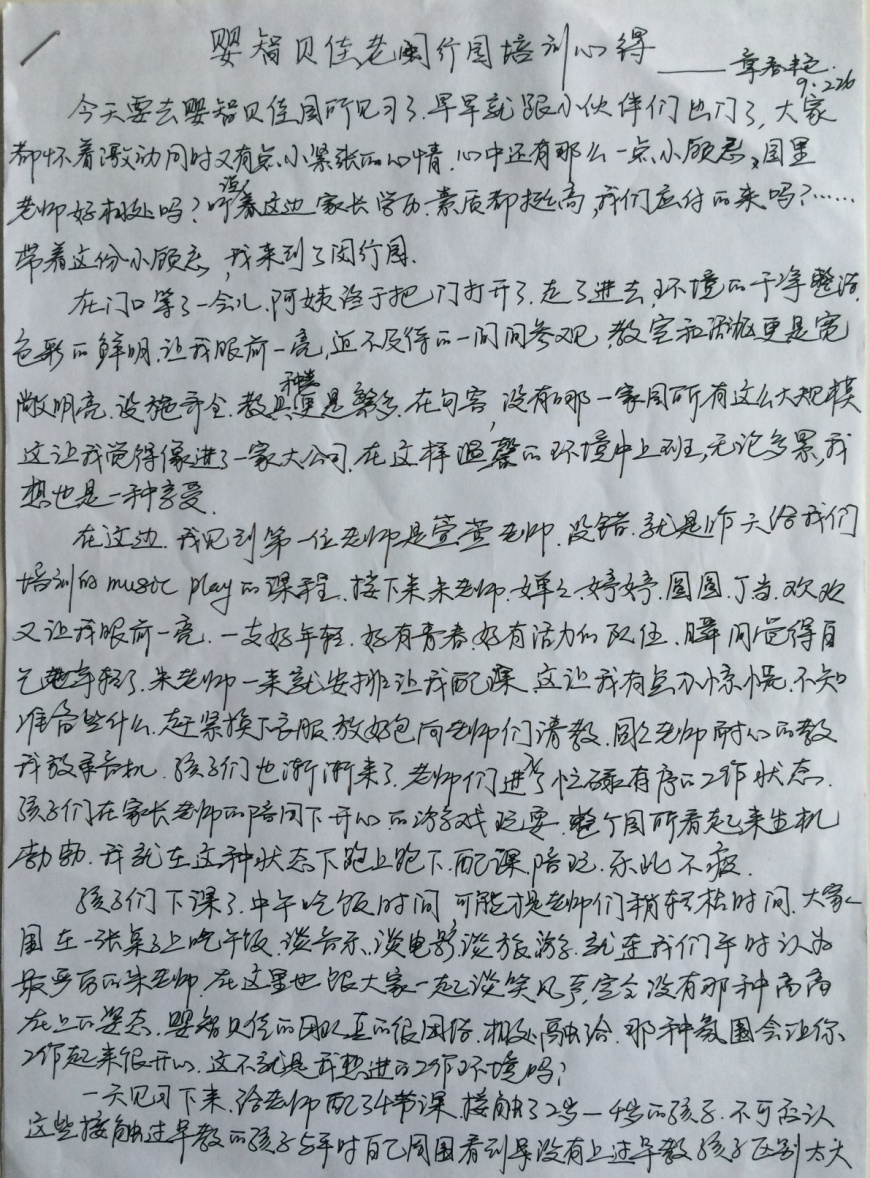 婴智贝佳老闵行园培训心得
——章春艳
9.22b
今天要去婴智贝佳园所见习了,早早就跟小伙伴们出门了,大家
都怀着激动同时又有点小紧张的心情,心中还有那么一点小顾忌,园里
老师好相处吗?听说着这边家长学历、素质都挺高,我们应付的来吗?……
带着这份小顾忌,我来到了闵行园.
在门口等了一会儿,阿姨终于把门打开了,走了进去,环境的干净整洁,
色彩的鲜明,让我眼前一亮,迫不及待的一间间参观,教室和活动区更是宽
敞明亮,设施齐全,教具种类更是繁多,在句容,没有哪一家园所有这么大规模
这让我觉得像进了一家大公司,在这样温馨的环境中上班,无论多累,我
想也是一种享受.
在这边,我见到第一位老师是萱萱老师,没错,就是昨天给我们
培训的music play的课程,接下来朱老师、婵婵、婷婷、圆圆、丁当、欢欢
又让我眼前一亮,一支好年轻,好有青春,好有活力的队伍,瞬间觉得自
己也年轻了,朱老师一来就安排让我配课,这让我有点小惊慌,不知
准备些什么,赶紧换下衣服,放好包向老师们请教,圆圆老师耐心的教
我放录音机,孩子们也渐渐来了,老师们进入了忙碌有序的工作状态.
孩子们在家长老师的陪同下开心的游戏玩耍,整个园所看起来生机
勃勃,我就在这种状态下跑上跑下,配课,陪玩,乐此不疲.
孩子们下课了,中午吃饭时间可能才是老师们稍轻松时间,大家
围在一张桌子上吃午饭,谈音乐、谈电影、谈旅游,就连我们平时认为
最严厉的朱老师,在这里也跟大家一起谈笑风声,完全没有那种高高
在上的姿态,婴智贝佳的团队真的很团结,相处融洽,那种氛围会让你
工作起来很开心,这不就是我想进的工作环境吗?
一天见习下来,给老师配了4节课,接触了2岁—4岁的孩子,不可否认
这些接触过早教的孩子与平时自己周围看到是没有上过早教孩子区别太大